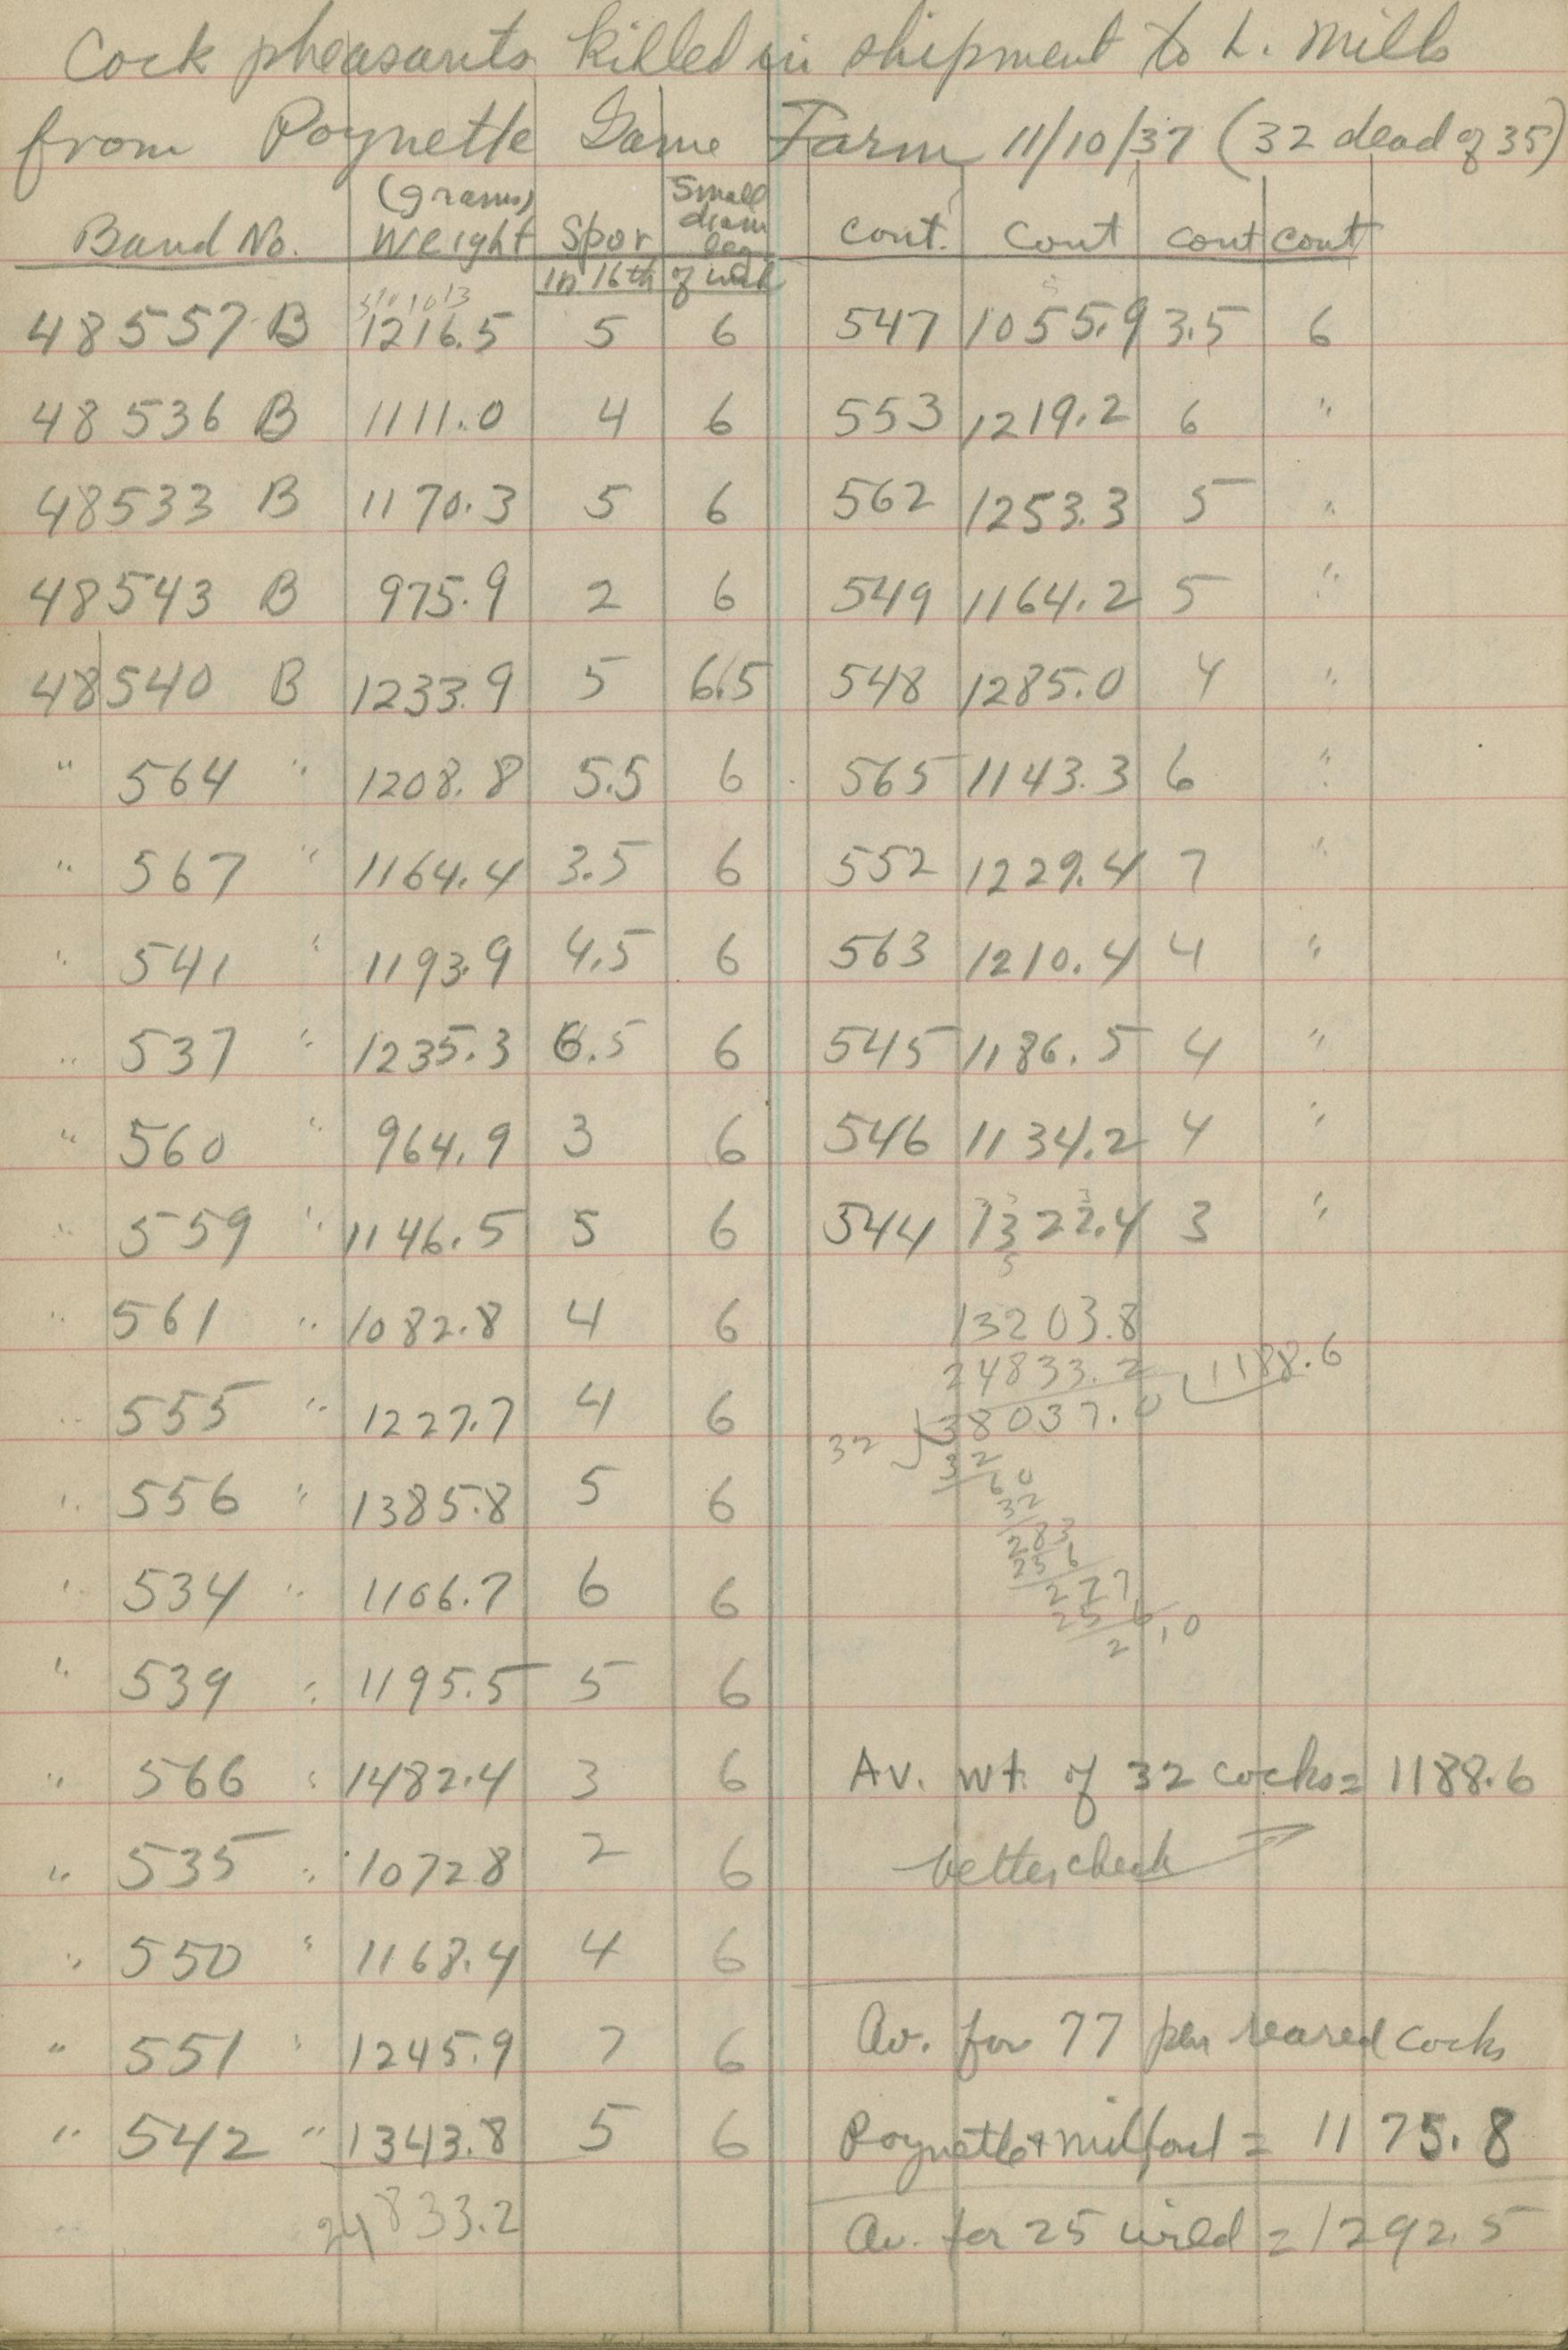 Cock pheasants killed in shipment to L. Mills
from Poynette Game Farm 11/10/37 (32 dead of 35)
Band No. (grams) Weight Spor in 16th Small diam leg of inch
48557 B 1216.5 5 6
48536 B 1111.0 4 6
48533 B 1170.3 5 6
48543 B 975.9 2 6
48540 B 1233.9 5 6.5
" 564 " 1208.8 5.5 6
" 567 " 1164.4 3.5 6
" 541 " 1193.9 4.5 6
" 537 " 1235.3 6.5 6
" 560 " 964.9 3 6
" 559 " 1146.5 5 6
" 561 " 1082.8 4 6
" 555 " 1227.7 4 6
" 556 " 1385.8 5 6
" 534 " 1106.7 6 6
" 539 " 1195.5 5 6
" 566 " 1482.4 3 6
" 535 " 1072.8 2 6
" 550 " 1168.4 4 6
" 551 " 1245.9 7 6
" 542 " 1343.8 5 6
24833.2
cont. Cont cont cont
547 1055.9 3.5 6
553 1219.2 6 "
562 1253.3 5 "
549 1164.2 5 "
548 1285.0 4 "
565 1143.3 6 "
552 1229.4 7 "
563 1210.4 4 "
545 1186.5 4 "
546 1134.2 4 "
544 1322.4 3 "
13203.8
24833.2 1188.6
32 38037.0
32
60
32
283
256
277
256
21.0
Av. wt. of 32 cocks = 1188.6
better check
Av. for 77 pen reared cocks
Poynette + Milford = 1175.8
Av. for 25 wild = 1292.5